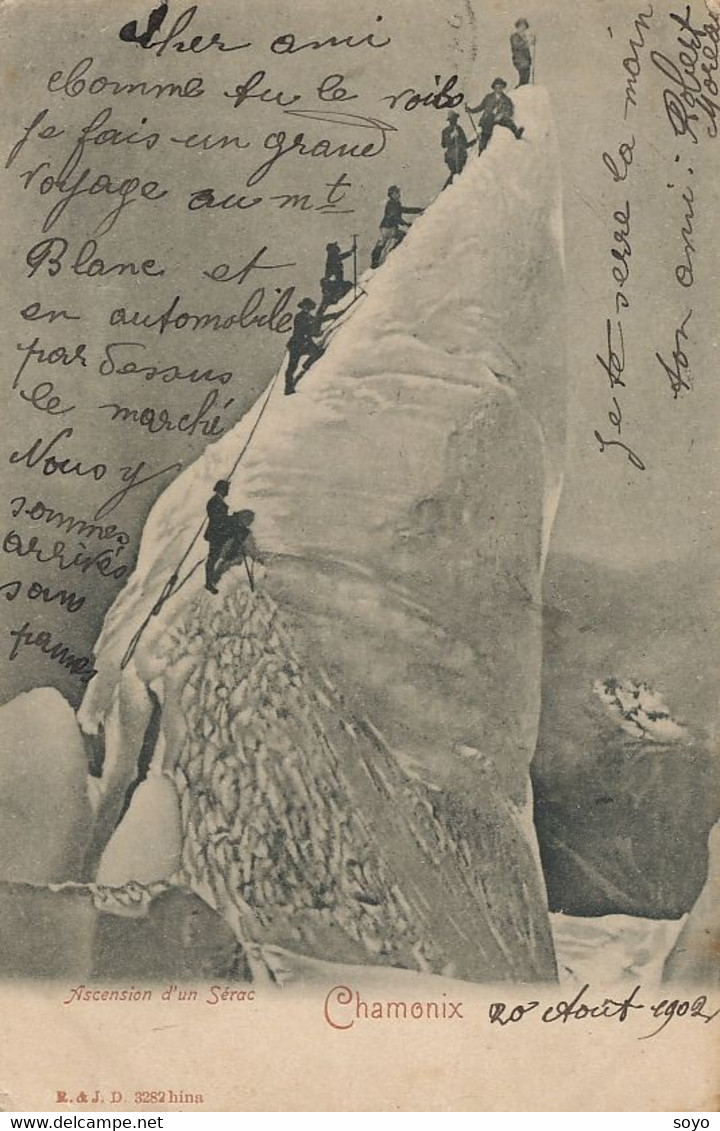 Cher ami
Comme tu le vois
Je fais un grand
voyage au mt
Blanc et
en automobile
par dessus
le marché
Nous y
sommes
arrivés
sans
pannes
Je te serre la main
ton ami: Robert
Moreau
Ascension d'un Sérac
Chamonix
20 Août 1902
R. & J. D. 3282hina
soyo